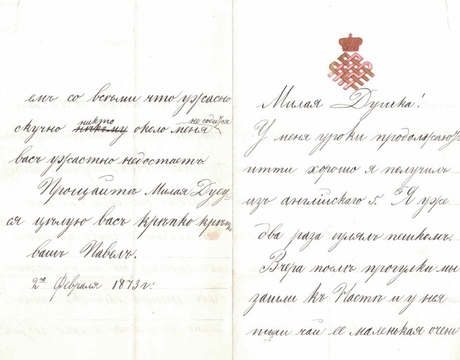 Милая Душка!
У меня уроки продолжают
итти хорошо я получилъ
изъ англійскаго 5. Я уже
два раза гулялъ пешкомъ.
Вчера послѣ прогулки мы
зашли къ Настѣ и у нея
пили чай ее маленькая очень
емъ со всѣми что ужасно
скучно никто никому около меня не садится
васъ ужастно недостаетъ
Прощайте Милая
ся цѣлую васъ крѣпко
вашъ Павелъ.
2го Февраля 1873 г: